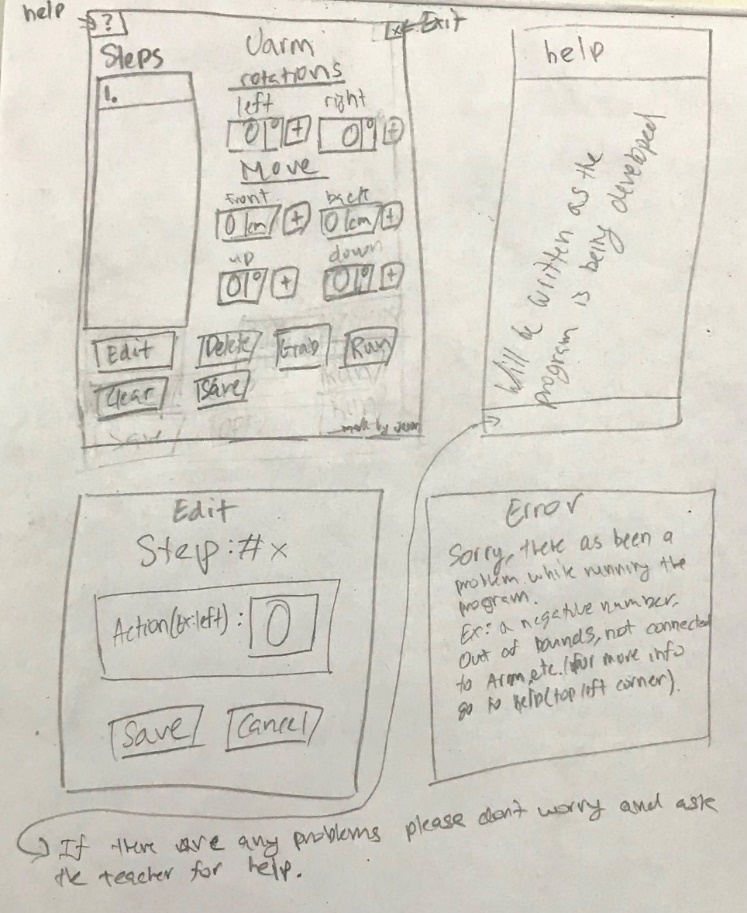 help
?
x
Exit
Steps
Uarm
rotations
1.
left
right
0 °
+
0 °
+
Move
front
back
0 cm
+
0 cm
+
up
down
0 °
+
0 °
+
Edit
Delete
Grab
Run
Clear
Save
Run
Save
made by
help
Will be written as the
program is being developed
Edit
Step:#x
Action(Ex:left) : 0
Save
Cancel
Error
Sorry, there as been a
problem while running the
program.
Ex: a negative number,
Out of bounds, not connected
to Arm, etc. (For more info
go to help(top left corner).
If there are any problems please don't worry and ask
the teacher for help.